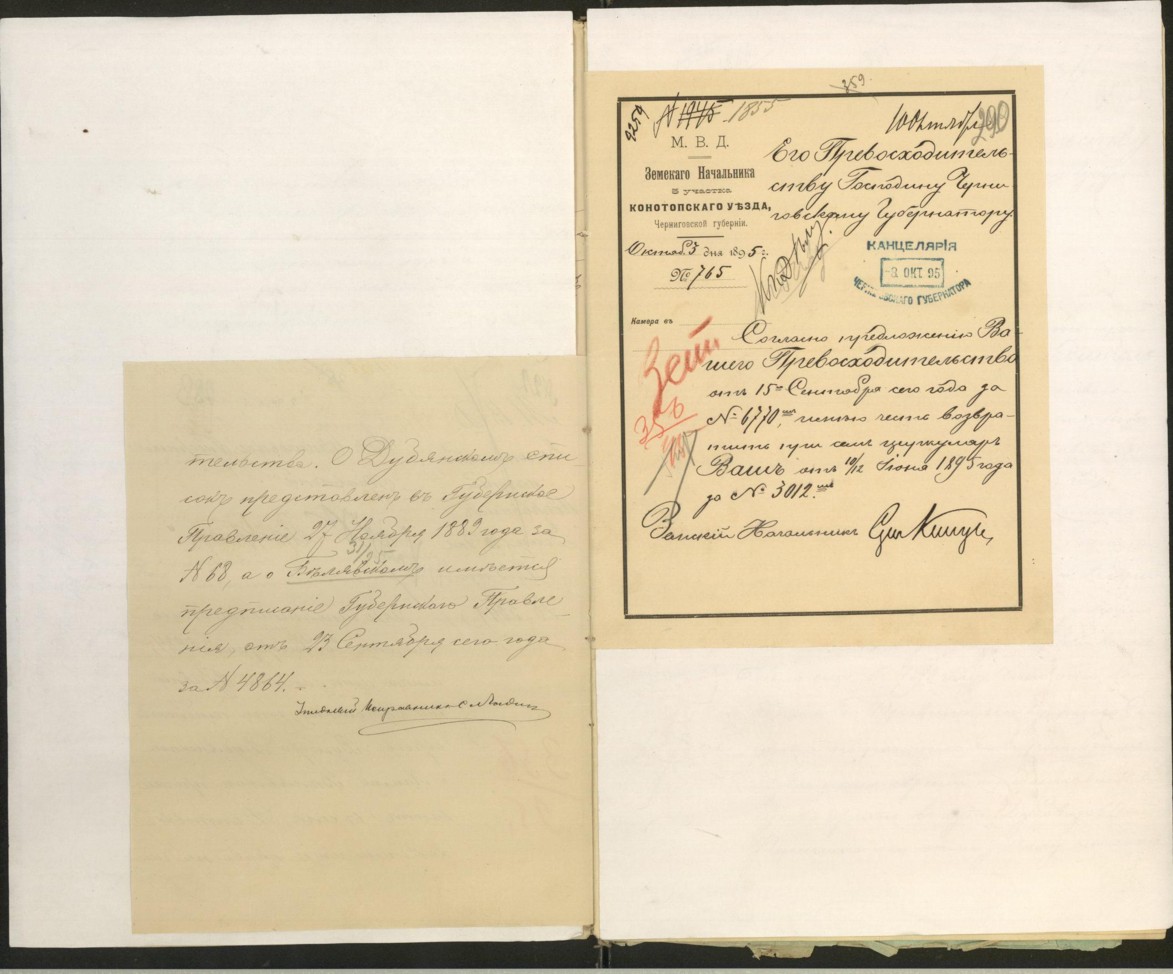 тельства. О Дубянскомъ спи-
сокъ представленъ въ Губернское
Правленіе 27 Ноября 1889 года за
31/25
№ 68, а о Белявскомъ имѣется
предписаніе Губернскаго Правле-
нія, отъ 23 Сентября сего года
за № 4864.
Исправникъ
359.
9259
№ 1945 1855
10 Октября
290
М. В. Д.
Земскаго Начальника
5 участка
КОНОТОПСКАГО УѢЗДА,
Черниговской губерніи.
Октяб. 3 дня 1895 г.
№ 765
Камора въ
Его Превосходитель-
ству Господину Черни-
говскому Губернатору.
Къ дѣлу
КАНЦЕЛЯРІЯ
-8 ОКТ 95
ЧЕРНИГОВСКАГО ГУБЕРНАТОРА
Согласно предложенію Ва-
шего Превосходительства
отъ 15го Сентября сего года за
№ 6770, имѣю честь возвра-
тить при семъ циркуляръ
Вашъ отъ 10/12 Іюня 1895 года
за № 3012.
Земскій Начальникъ